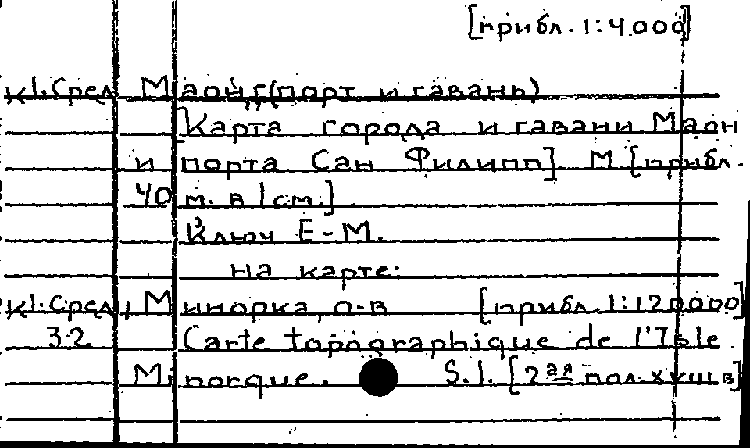 [прибл. 1:4.000]
к1.Сред Маон, (порт и гавань)
[Карта города и гавани Маон
и порта Сан Филипп]. М [прибл.
40 м. в 1 см.]
Ключ Е-М.
на карте:
к1.Сред, Минорка, о-в [прибл. 1:120000]
32 Carte topographique de l'Isle
Minorque. S.l. [2ая пол. XVIII в]